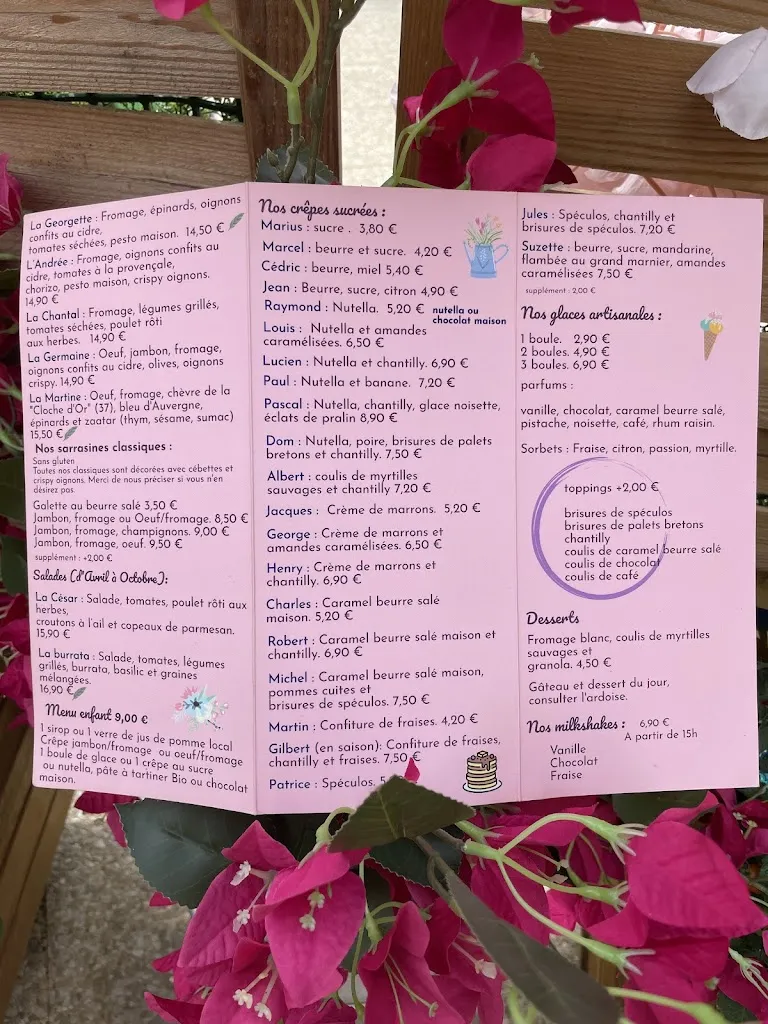 La Georgette : Fromage, épinards, oignons
confits au cidre,
tomates séchées, pesto maison. 14,50 €
L'Andrée : Fromage, oignons confits au
cidre, tomates à la provençale,
chorizo, pesto maison, crispy oignons.
14,90 €
La Chantal : Fromage, légumes grillés,
tomates séchées, poulet rôti
aux herbes. 14,90 €
La Germaine : Oeuf, jambon, fromage,
oignons confits au cidre, olives, oignons
crispy. 14,90 €
La Martine : Oeuf, fromage, chèvre de la
"Cloche d'Or" (37), bleu d'Auvergne,
épinards et zaatar (thym, sésame, sumac)
15,50 €
Nos sarrasines classiques :
Sans gluten
Toutes nos classiques sont décorées avec cébettes et
crispy oignons. Merci de nous préciser si vous n'en
désirez pas.
Galette au beurre salé 3,50 €
Jambon, fromage ou Oeuf/fromage. 8,50 €
Jambon, fromage, champignons. 9,00 €
Jambon, fromage, oeuf. 9,50 €
supplément : +2,00 €
Salades (d'Avril à Octobre):
La César : Salade, tomates, poulet rôti aux
herbes,
croutons à l'ail et copeaux de parmesan.
15,90 €
La burrata : Salade, tomates, légumes
grillés, burrata, basilic et graines
mélangées.
16,90 €
Menu enfant 9,00 €
1 sirop ou 1 verre de jus de pomme local
Crêpe jambon/fromage ou oeuf/fromage
1 boule de glace ou 1 crêpe au sucre
ou nutella, pâte à tartiner Bio ou chocolat
maison.
Nos crêpes sucrées :
Marius : sucre . 3,80 €
Marcel : beurre et sucre. 4,20 €
Cédric : beurre, miel 5,40 €
Jean : Beurre, sucre, citron 4,90 €
Raymond : Nutella. 5,20 € nutella ou
chocolat maison
Louis : Nutella et amandes
caramélisées. 6,50 €
Lucien : Nutella et chantilly. 6,90 €
Paul : Nutella et banane. 7,20 €
Pascal : Nutella, chantilly, glace noisette,
éclats de pralin 8,90 €
Dom : Nutella, poire, brisures de palets
bretons et chantilly. 7,50 €
Albert : coulis de myrtilles
sauvages et chantilly 7,20 €
Jacques : Crème de marrons. 5,20 €
George : Crème de marrons et
amandes caramélisées. 6,50 €
Henry : Crème de marrons et
chantilly. 6,90 €
Charles : Caramel beurre salé
maison. 5,20 €
Robert : Caramel beurre salé maison et
chantilly. 6,90 €
Michel : Caramel beurre salé maison,
pommes cuites et
brisures de spéculos. 7,50 €
Martin : Confiture de fraises. 4,20 €
Gilbert (en saison): Confiture de fraises,
chantilly et fraises. 7,50 €
Patrice : Spéculos.
Jules : Spéculos, chantilly et
brisures de spéculos. 7,20 €
Suzette : beurre, sucre, mandarine,
flambée au grand marnier, amandes
caramélisées 7,50 €
supplément : 2,00 €
Nos glaces artisanales :
1 boule. 2,90 €
2 boules. 4,90 €
3 boules. 6,90 €
parfums :
vanille, chocolat, caramel beurre salé,
pistache, noisette, café, rhum raisin.
Sorbets : Fraise, citron, passion, myrtille.
toppings +2,00 €
brisures de spéculos
brisures de palets bretons
chantilly
coulis de caramel beurre salé
coulis de chocolat
coulis de café
Desserts
Fromage blanc, coulis de myrtilles
sauvages et
granola. 4,50 €
Gâteau et dessert du jour,
consulter l'ardoise.
Nos milkshakes : 6,90 €
A partir de 15h
Vanille
Chocolat
Fraise